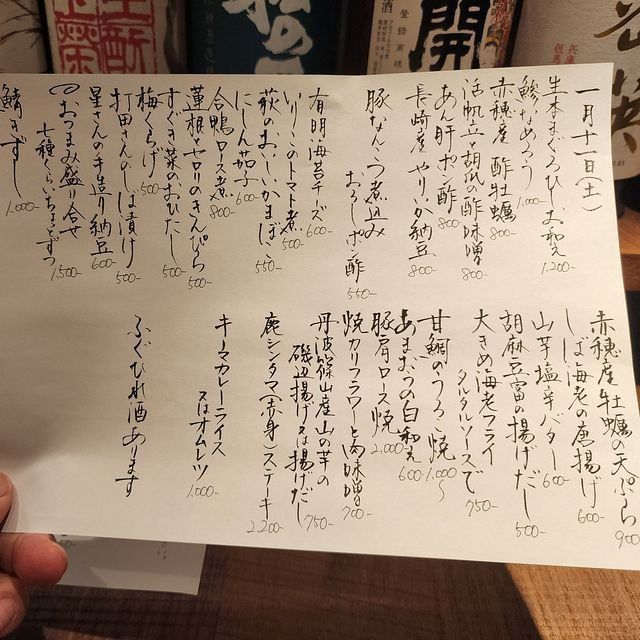 一月十一日(土)
生本まぐろひしお和え 1,200-
鯵なめろう 1,000-
赤穂産 酢牡蠣 800-
活帆立と胡瓜の酢味噌 800-
あん肝ポン酢 800-
長崎産 やりいか納豆 800-
豚なんこつ煮込み
おろしポン酢 550-
有明海苔チーズ 600-
いりこのトマト煮 500-
萩のおいしいかまぼこ 550-
にしん茄子 600-
合鴨ロース煮 800-
蓮根とセロリのきんぴら 500-
すぐき菜のおひたし 500-
梅くらげ 500-
打田さんのしば漬け 500-
星さんの手造り納豆 600-
おつまみ盛り合せ
七種くらいちょとずつ 1,500-
鯖きずし 1,000-
赤穂産牡蠣の天ぷら 900
しば海老の唐揚げ 600-
山芋塩辛バター 600-
胡麻豆富の揚げだし 500-
大きめ海老フライ
タルタルソースで 750-
甘鯛のうろこ焼 1,000〜
あまおうの白和え 600-
豚肩ロース焼 2,000-
焼カリフラワーと肉味噌 700-
丹波篠山産山の芋の
磯辺揚げ又は揚げだし 750-
鹿シンタマ(赤身)ステーキ 2,200-
キーマカレーライス
又はオムレツ 1,000-
ふぐひれ酒あります
開
登録商標
酒
兵庫
但馬